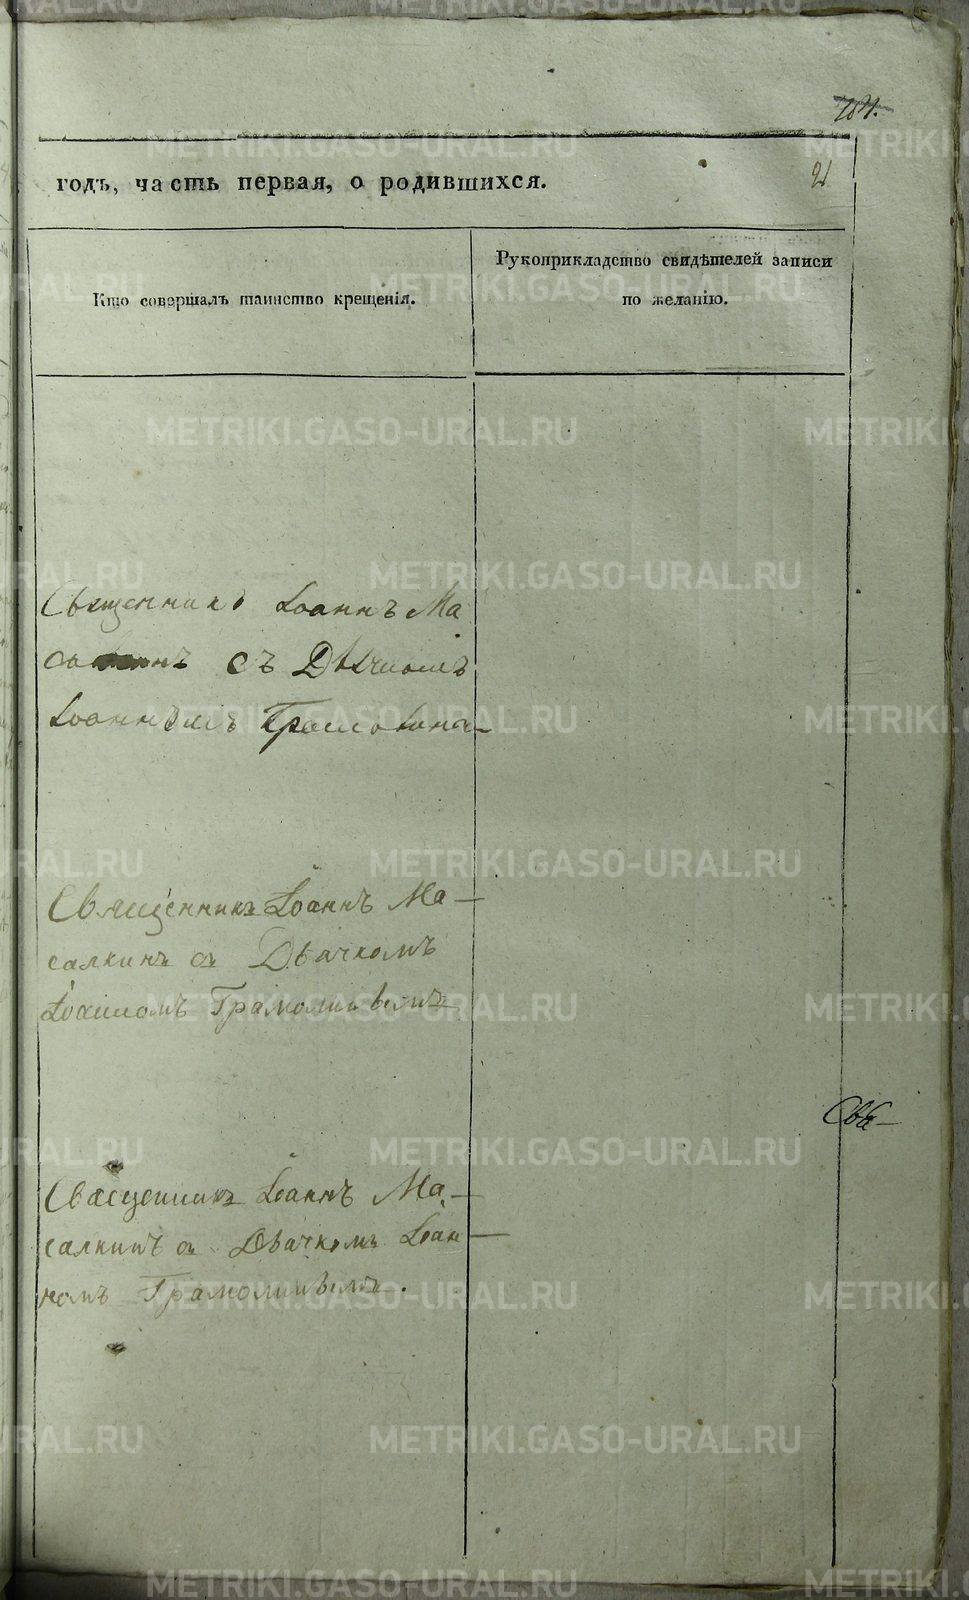 годъ, часть первая, о родившихся.
21
Кто совершалъ таинство крещенія.
Рукоприкладство свидѣтелей записи
по желанію.
Священникъ Іоаннъ Ма
съ Дьячкомъ
Іоанномъ
Священникъ Іоаннъ Ма-
салкинъ съ Дьячкомъ
Іоанномъ Грамолинымъ
Священникъ Іоаннъ Ма-
салкинъ съ Дьячкомъ Іоан-
номъ Грамолинымъ.
METRIKI.GASO-URAL.RU